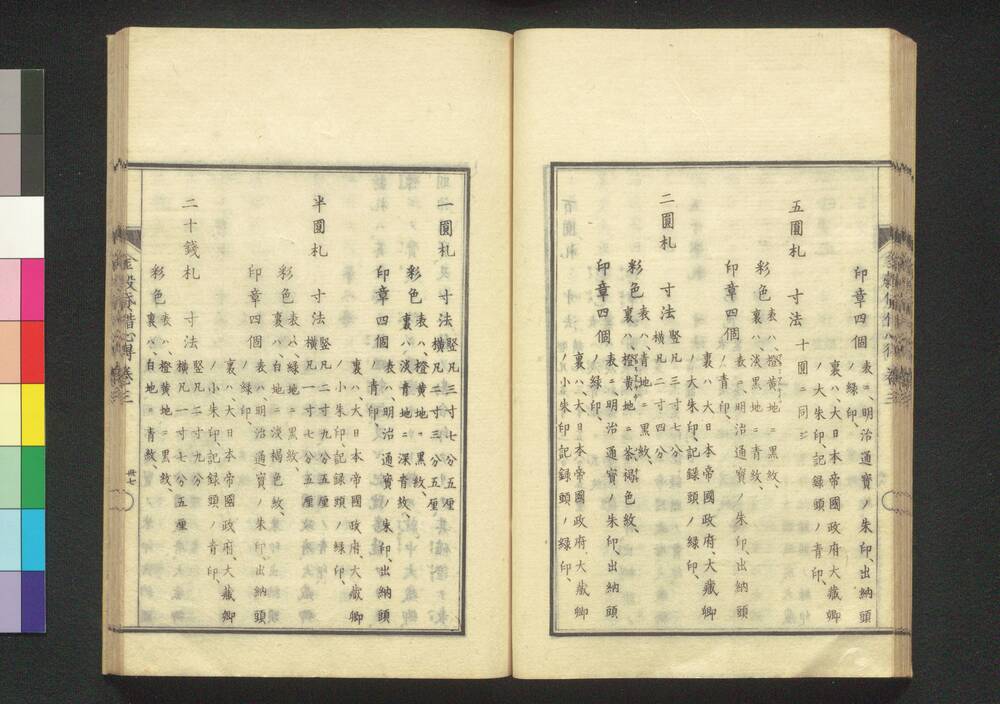 印章四個 表ニ、明治通寳ノ朱印、出納頭
ノ緑印、
裏ハ、大日本帝國政府、大藏卿
ノ大朱印、記録頭ノ青印、
五圓札 寸法 十圓ニ同シ
彩色 表ハ、橙黄地ニ黒紋、
裏ハ、淡黒地ニ青紋、
印章四個 表ニ、明治通寳ノ朱印、出納頭
ノ青印、
裏ハ、大日本帝國政府、大藏卿
ノ大朱印、記録頭ノ緑印、
二圓札 寸法 竪凡三寸七分
横凡二寸四分
彩色 表ハ、青地ニ黒紋、
裏ハ、橙黄地ニ茶褐色紋、
印章四個 表ニ、明治通寳ノ朱印、出納頭
ノ緑印、
裏ハ、大日本帝國政府、大藏卿
ノ小朱印記録頭ノ緑印、
一圓札 寸法 竪凡三寸七分五厘
横凡二寸三分五厘
彩色 表ハ、橙黄地ニ黒紋、
裏ハ、淡青地ニ深青紋、
印章四個 表ハ、明治通寳ノ朱印、出納頭
ノ青印、
裏ハ、大日本帝國政府、大藏卿
ノ小朱印、記録頭ノ緑印、
半圓札 寸法 竪凡二寸九分五厘
横凡一寸七分五厘
彩色 表ハ、緑地ニ黒紋、
裏ハ、白地ニ淡褐色紋、
印章四個 表ハ、明治通寳ノ朱印、出納頭
ノ緑印、
裏ハ、大日本帝國政府、大藏卿
ノ小朱印、記録頭ノ青印、
二十錢札 寸法 竪凡二寸九分
横凡一寸七分五厘
彩色 表ハ、橙黄地ニ黒紋
裏ハ、白地ニ青紋、
卷三
卅七